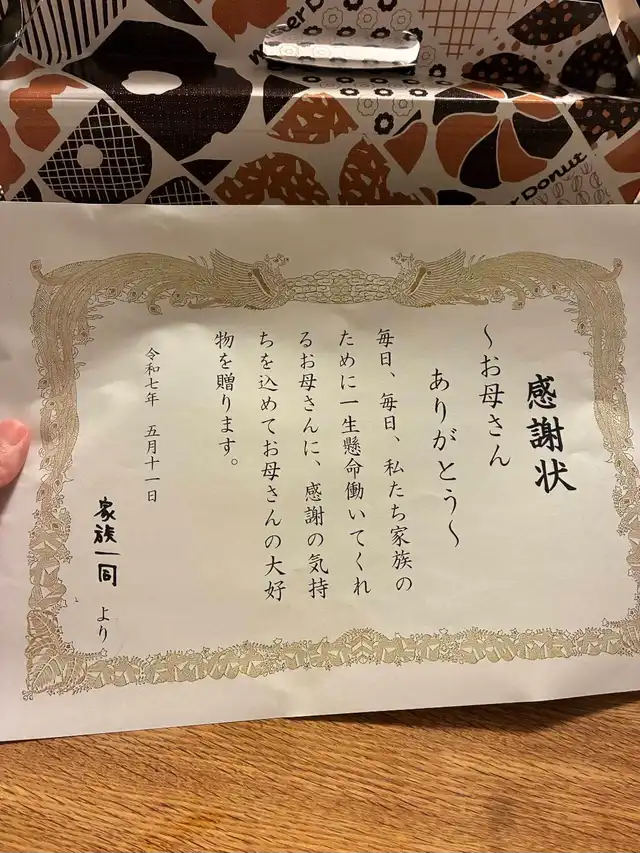 er Donut
er Donut
感謝状
〜お母さん
ありがとう〜
毎日、毎日、私たち家族の
ために一生懸命働いてくれ
るお母さんに、感謝の気持
ちを込めてお母さんの大好
物を贈ります。
令和七年 五月十一日
家族一同 より